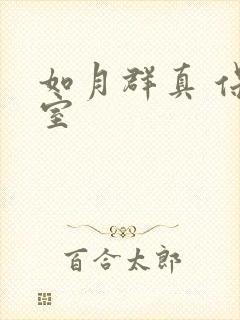 如月群真
室
百合太郎